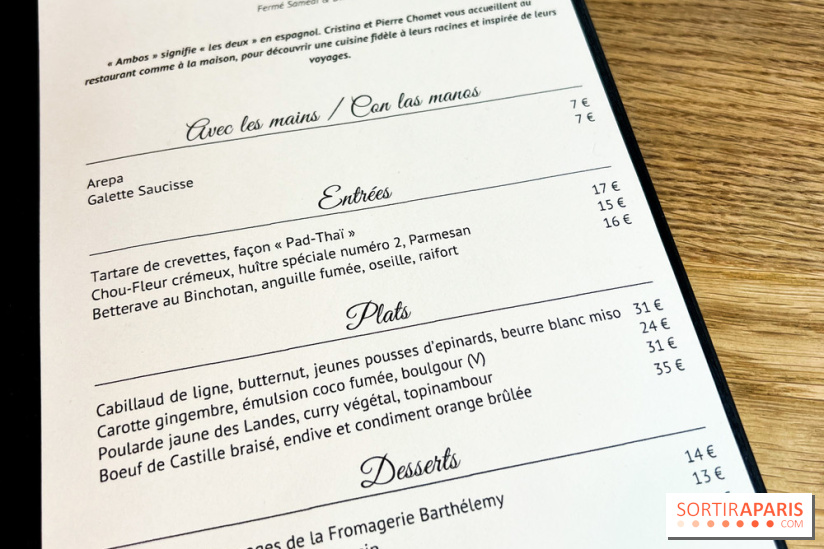 Fermé Samedi &
« Ambos » signifie « les deux » en espagnol. Cristina et Pierre Chomet vous accueillent au
restaurant comme à la maison, pour découvrir une cuisine fidèle à leurs racines et inspirée de leurs
voyages.
Avec les mains / Con las manos
Arepa 7 €
Galette Saucisse 7 €
Entrées
Tartare de crevettes, façon « Pad-Thaï » 17 €
Chou-Fleur crémeux, huître spéciale numéro 2, Parmesan 15 €
Betterave au Binchotan, anguille fumée, oseille, raifort 16 €
Plats
Cabillaud de ligne, butternut, jeunes pousses d'epinards, beurre blanc miso 31 €
Carotte gingembre, émulsion coco fumée, boulgour (V) 24 €
Poularde jaune des Landes, curry végétal, topinambour 31 €
Boeuf de Castille braisé, endive et condiment orange brûlée 35 €
Desserts
de la Fromagerie Barthélemy 14 €
13 €
SORTIRAPARIS
.COM